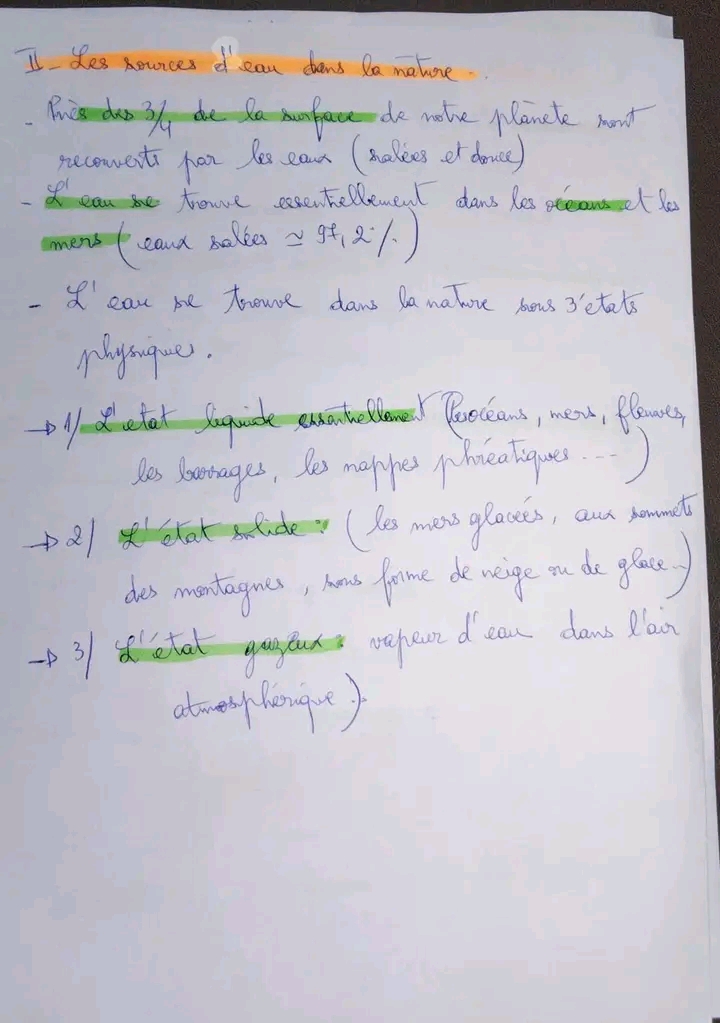 II- Les sources d'eau dans la nature.
- Près des 3/4 de la surface de notre planète sont
recouverts par les eaux (salées et douce)
- L'eau se trouve essentiellement dans les océans et les
mers (eaux salées ≃ 97,2%)
- L'eau se trouve dans la nature sous 3 états
physiques.
→ 1/ L'etat liquide essentiellement (les océans, mers, fleuves,
les barrages, les nappes phréatiques ...)
→ 2/ L'état solide : (les mers glacées, aux sommets
des montagnes, sous forme de neige ou de glace..)
→ 3/ L'état gazeux : vapeur d'eau dans l'air
atmosphérique).